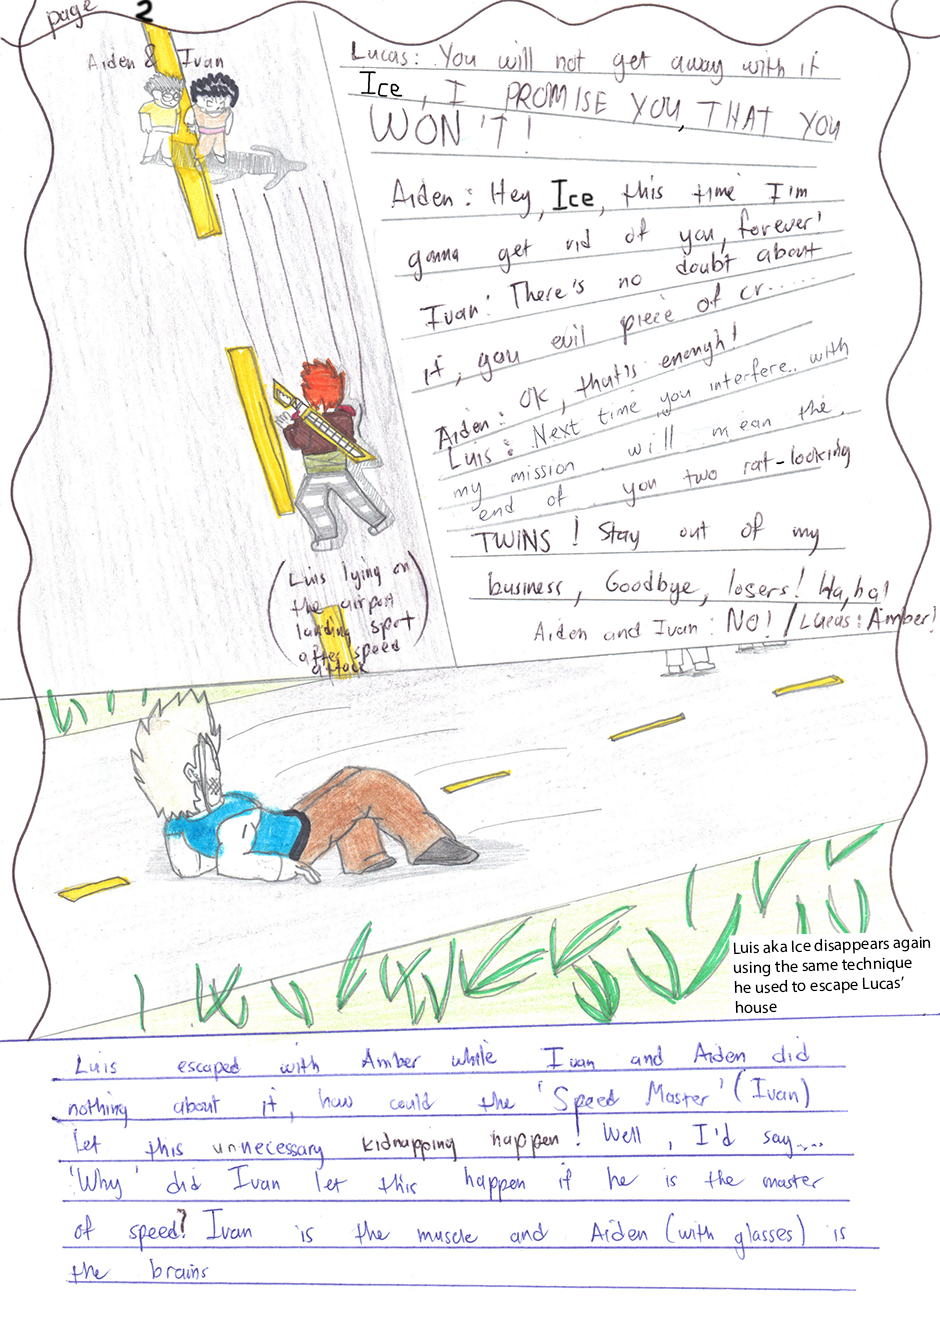 page 2
Aiden & Ivan
Lucas: You will not get away with it
Ice, I PROMISE YOU, THAT YOU
WON'T!
Aiden: Hey, Ice, this time I'm
gonna get rid of you, forever!
Ivan: There's no doubt about
it, you evil piece of cr......
Aiden: OK, that's enough!
Luis: Next time you interfere.. with
my mission will mean the
end of you two rat-looking
TWINS! Stay out of my
business, Goodbye, losers! Ha, ha!
Aiden and Ivan: NO! / Lucas: Amber!
(Luis lying on
the airport
landing spot
after speed
attack)
Luis aka Ice disappears again
using the same technique
he used to escape Lucas'
house
Luis escaped with Amber while Ivan and Aiden did
nothing about it, how could the 'Speed Master' (Ivan)
let this unnecessary kidnapping happen! Well, I'd say....
'Why' did Ivan let this happen if he is the master
of speed? Ivan is the muscle and Aiden (with glasses) is
the brains